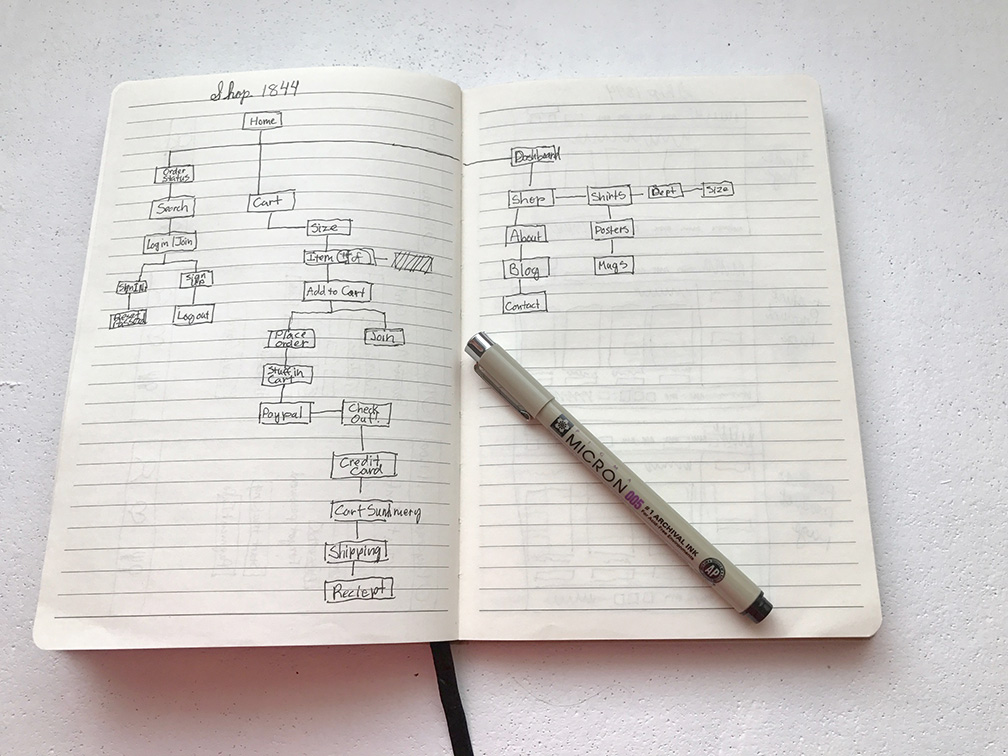 Shop 1844
Home
Dashboard
Order
Status
Search
Login Join
Sign In
Sign
Up
Log out
Cart
Size
Item
Add to Cart
Place
order
Join
Stuff in
Cart
Paypal
Check
Out!
Credit
Card
Cart Summery
Shipping
Reciept
Shop
Shirts
Dept
Size
About
Posters
Blog
Mugs
Contact
SAKURA
MICRON 005
#1 ARCHIVAL INK
AP